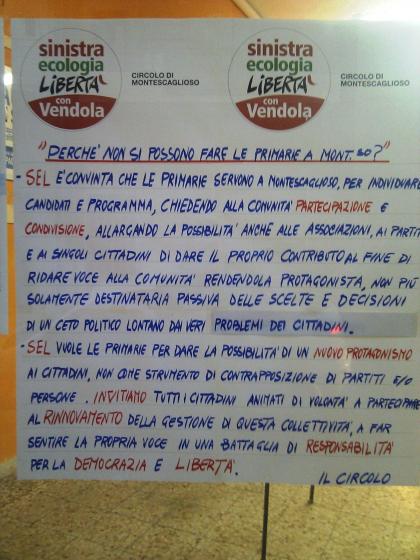 sinistra
ecologia
LIBERTÀ
con
Vendola
CIRCOLO DI
MONTESCAGLIOSO
sinistra
ecologia
LIBERTÀ
con
Vendola
CIRCOLO DI
MONTESCAGLIOSO
"PERCHE' NON SI POSSONO FARE LE PRIMARIE A MONT.SO?"
- SEL E' CONVINTA CHE LE PRIMARIE SERVONO A MONTESCAGLIOSO, PER INDIVIDUARE
CANDIDATI E PROGRAMMA, CHIEDENDO ALLA COMUNITA' PARTECIPAZIONE E
CONDIVISIONE, ALLARGANDO LA POSSIBILITA' ANCHE ALLE ASSOCIAZIONI, AI PARTITI
E AI SINGOLI CITTADINI DI DARE IL PROPRIO CONTRIBUTO AL FINE DI
RIDARE VOCE ALLA COMUNITA' RENDENDOLA PROTAGONISTA, NON PIU'
SOLAMENTE DESTINATARIA PASSIVA DELLE SCELTE E DECISIONI
DI UN CETO POLITICO LONTANO DAI VERI PROBLEMI DEI CITTADINI.
- SEL VUOLE LE PRIMARIE PER DARE LA POSSIBILITA' DI UN NUOVO PROTAGONISMO
AI CITTADINI, NON COME STRUMENTO DI CONTRAPPOSIZIONE DI PARTITI E/O
PERSONE. INVITIAMO TUTTI I CITTADINI ANIMATI DI VOLONTA' A PARTECIPARE
AL RINNOVAMENTO DELLA GESTIONE DI QUESTA COLLETTIVITA', A FAR
SENTIRE LA PROPRIA VOCE IN UNA BATTAGLIA DI RESPONSABILITA'
PER LA DEMOCRAZIA E LIBERTA'.
IL CIRCOLO